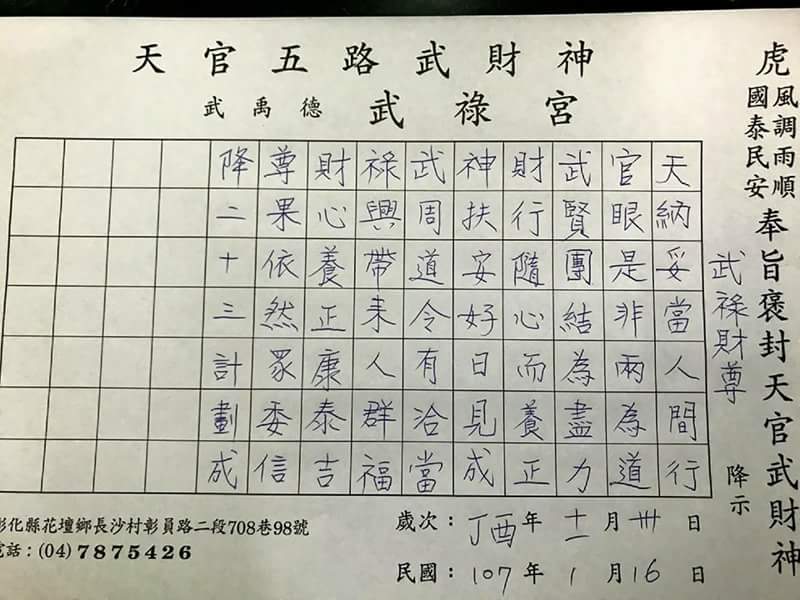 天官五路武財神
武禹德 武祿宮
虎
風調雨順
國泰民安
奉旨褒封天官武財神
武祿財尊 降示
天納妥當人間行
官眼是非兩為道
武賢團結為盡力
財行隨心而養正
神扶安好日見成
武周道令有洽當
祿興帶来人群福
財心養正康泰吉
尊果依然眾委信
降二十三計劃成
歲次：丁酉年十一月卅日
民國：107年1月16日
彰化縣花壇鄉長沙村彰員路二段708巷98號
電話：(04) 7875426